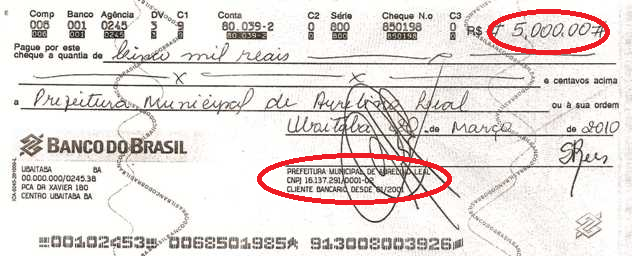 Comp Banco Agência C1 Conta C2 Série Cheque N.o C3
008 001 0245 9 80.039-2 0 800 850198 0 R$ # 5,000.00#
Pague por este
cheque a quantia de cinco mil reais
x x e centavos acima
a Prefeitura Municipal de Aurelino Leal ou à sua ordem
Ubaitaba de Março de 2010
BANCO DO BRASIL
UBAITABA BA
00.000.000/0245.38
PCA DR XAVIER 180
CENTRO UBAITABA BA
PREFEITURA MUNICIPAL DE AURELINO LEAL
CNPJ 16.137.291/0001-02
CLIENTE BANCARIO DESDE 01/2001
00102453 0068501985 913008003926